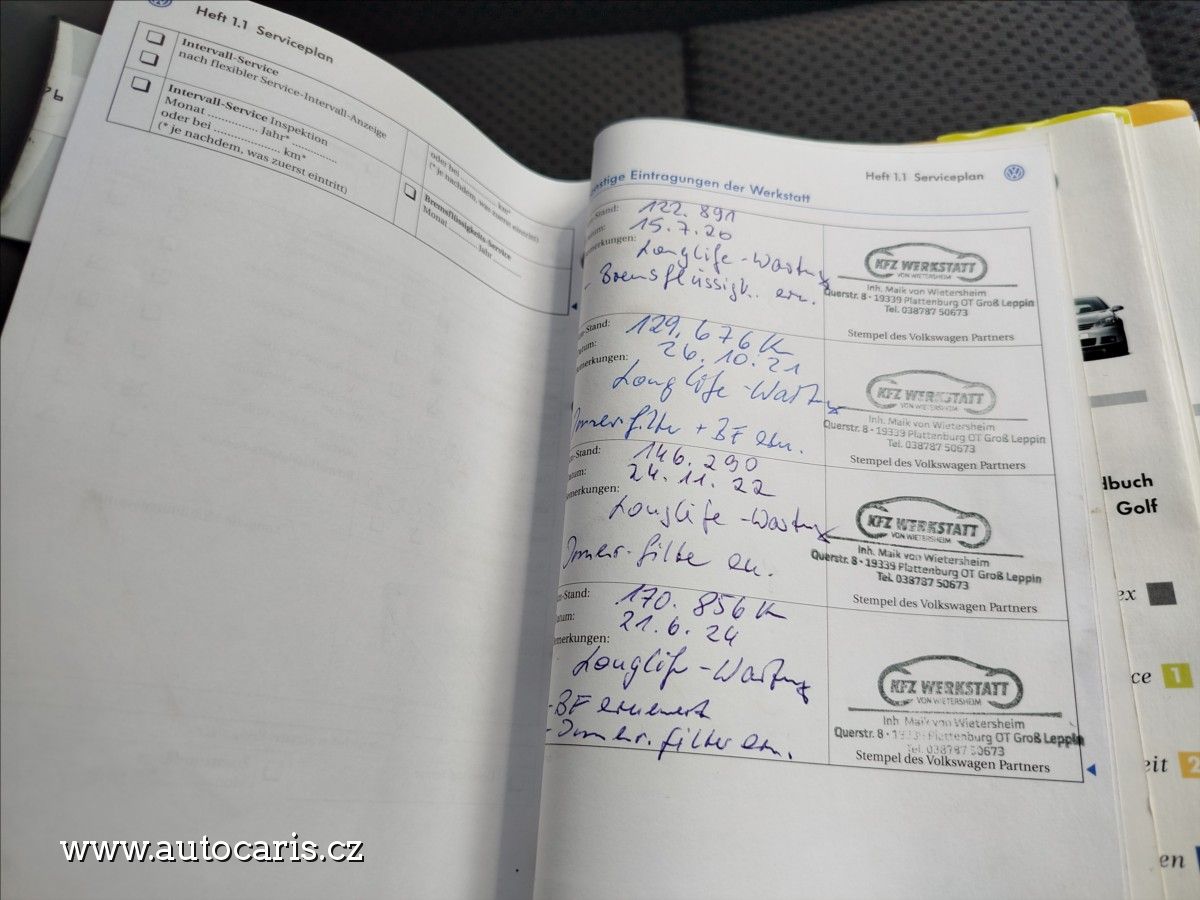 Heft 1.1 Serviceplan
Intervall-Service
nach flexibler Service-Intervall-Anzeige
Intervall-Service Inspektion
Monat ............... Jahr* ...............
oder bei .................... km*
(* je nachdem, was zuerst eintritt)
oder bei ............... km*
(* je nachdem, was zuerst eintritt)
Bremsflüssigkeits-Service
Monat ............... Jahr ...............
Heft 1.1 Serviceplan
nstige Eintragungen der Werkstatt
-Stand: 122.891
tum: 15.7.20
merkungen:
Longlife-Wartung
- Bremsflüssigk. ern.
KFZ WERKSTATT
Inh. Maik von Wietersheim
Querstr. 8 · 19339 Plattenburg OT Groß Leppin
Tel. 038787 50673
Stempel des Volkswagen Partners
-Stand: 129.676 K
atum: 26.10.21
emerkungen:
Longlife-Wartung
Innenr.filter + BF ern.
KFZ WERKSTATT
VON WIETERSHEIM
Inh. Maik von Wietersheim
Querstr. 8 · 19339 Plattenburg OT Groß Leppin
Tel. 038787 50673
Stempel des Volkswagen Partners
-Stand: 146.290
tum: 24.11.22
emerkungen:
Longlife-Wartung
Innenr.filter ern.
KFZ WERKSTATT
VON WIETERSHEIM
Inh. Maik von Wietersheim
Querstr. 8 · 19339 Plattenburg OT Groß Leppin
Tel. 038787 50673
Stempel des Volkswagen Partners
-Stand: 170.856 K
atum: 21.6.24
emerkungen:
Longlife-Wartung
- BF erneuert
- Innenr.filter ern.
KFZ WERKSTATT
VON WIETERSHEIM
Inh. Maik von Wietersheim
Querstr. 8 · 19339 Plattenburg OT Groß Leppin
Tel. 038787 50673
Stempel des Volkswagen Partners
dbuch
Golf
ex
ce 1
eit 2
en
www.autocaris.cz